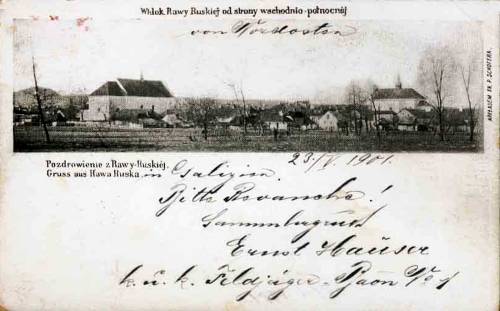 Widok Rawy Ruskiej od strony wschodnio-północnéj
von Nordosten
NAKŁADEM FR. P. SCHOFERA.
23./V. 1901.
Pozdrowienie z Rawy-Ruskiéj.
Gruss aus Rawa Ruska in Galizien.
Bitte Revanche!
Sammlergruß
Ernst Hauser
k. u. k. Feldjäger-Baon No 4